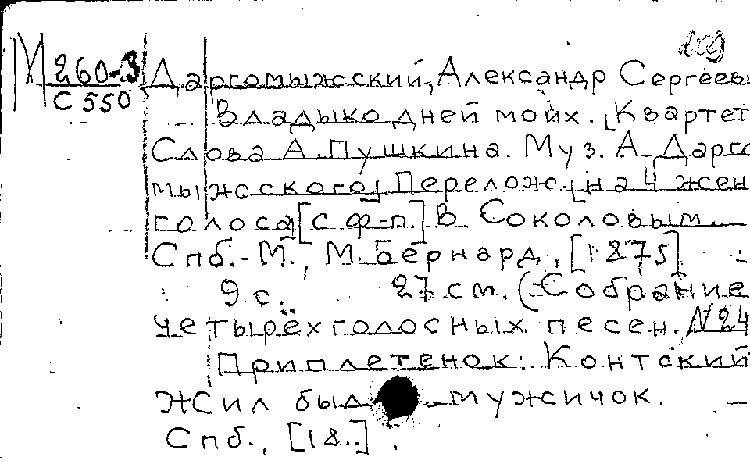 М 260-3
С 550
Даргомыжский, Александр Сергееви
Владыко дней моих. [Квартет
Слова А. Пушкина. Муз. А. Дарго
мыжского] Перелож. [на 4 жен
голоса] [с ф-п.] В. Соколовым.
Спб.-М., М. Бернард, [1875]
9 с. 27 см. (Собрание
четырёхголосных песен. №24
Приплетенок: Контский
Жил был мужичок.
Спб., [18..].